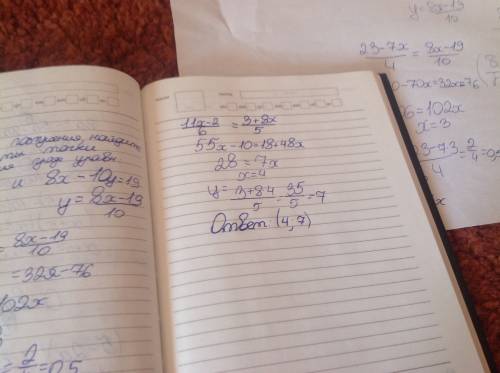 построения найдите
точки
и 8x - 10y = 19
y = 8x-19 / 10
= 8x-19 / 10
= 32x - 76
102x
= 2/4 = 0,5
11x-2 / 6 = 3+8x / 5
55x - 10 = 18 + 48x
28 = 7x
x = 4
y = 3+84 / 5 = 35 / 5 = 7
Ответ: (4, 7)
y = 8x-19 / 10
23-7x / 4 = 8x-19 / 10
0-70x = 32x-76
6 = 102x
x = 3
3-7.3 / 4 = 2/4 = 0,